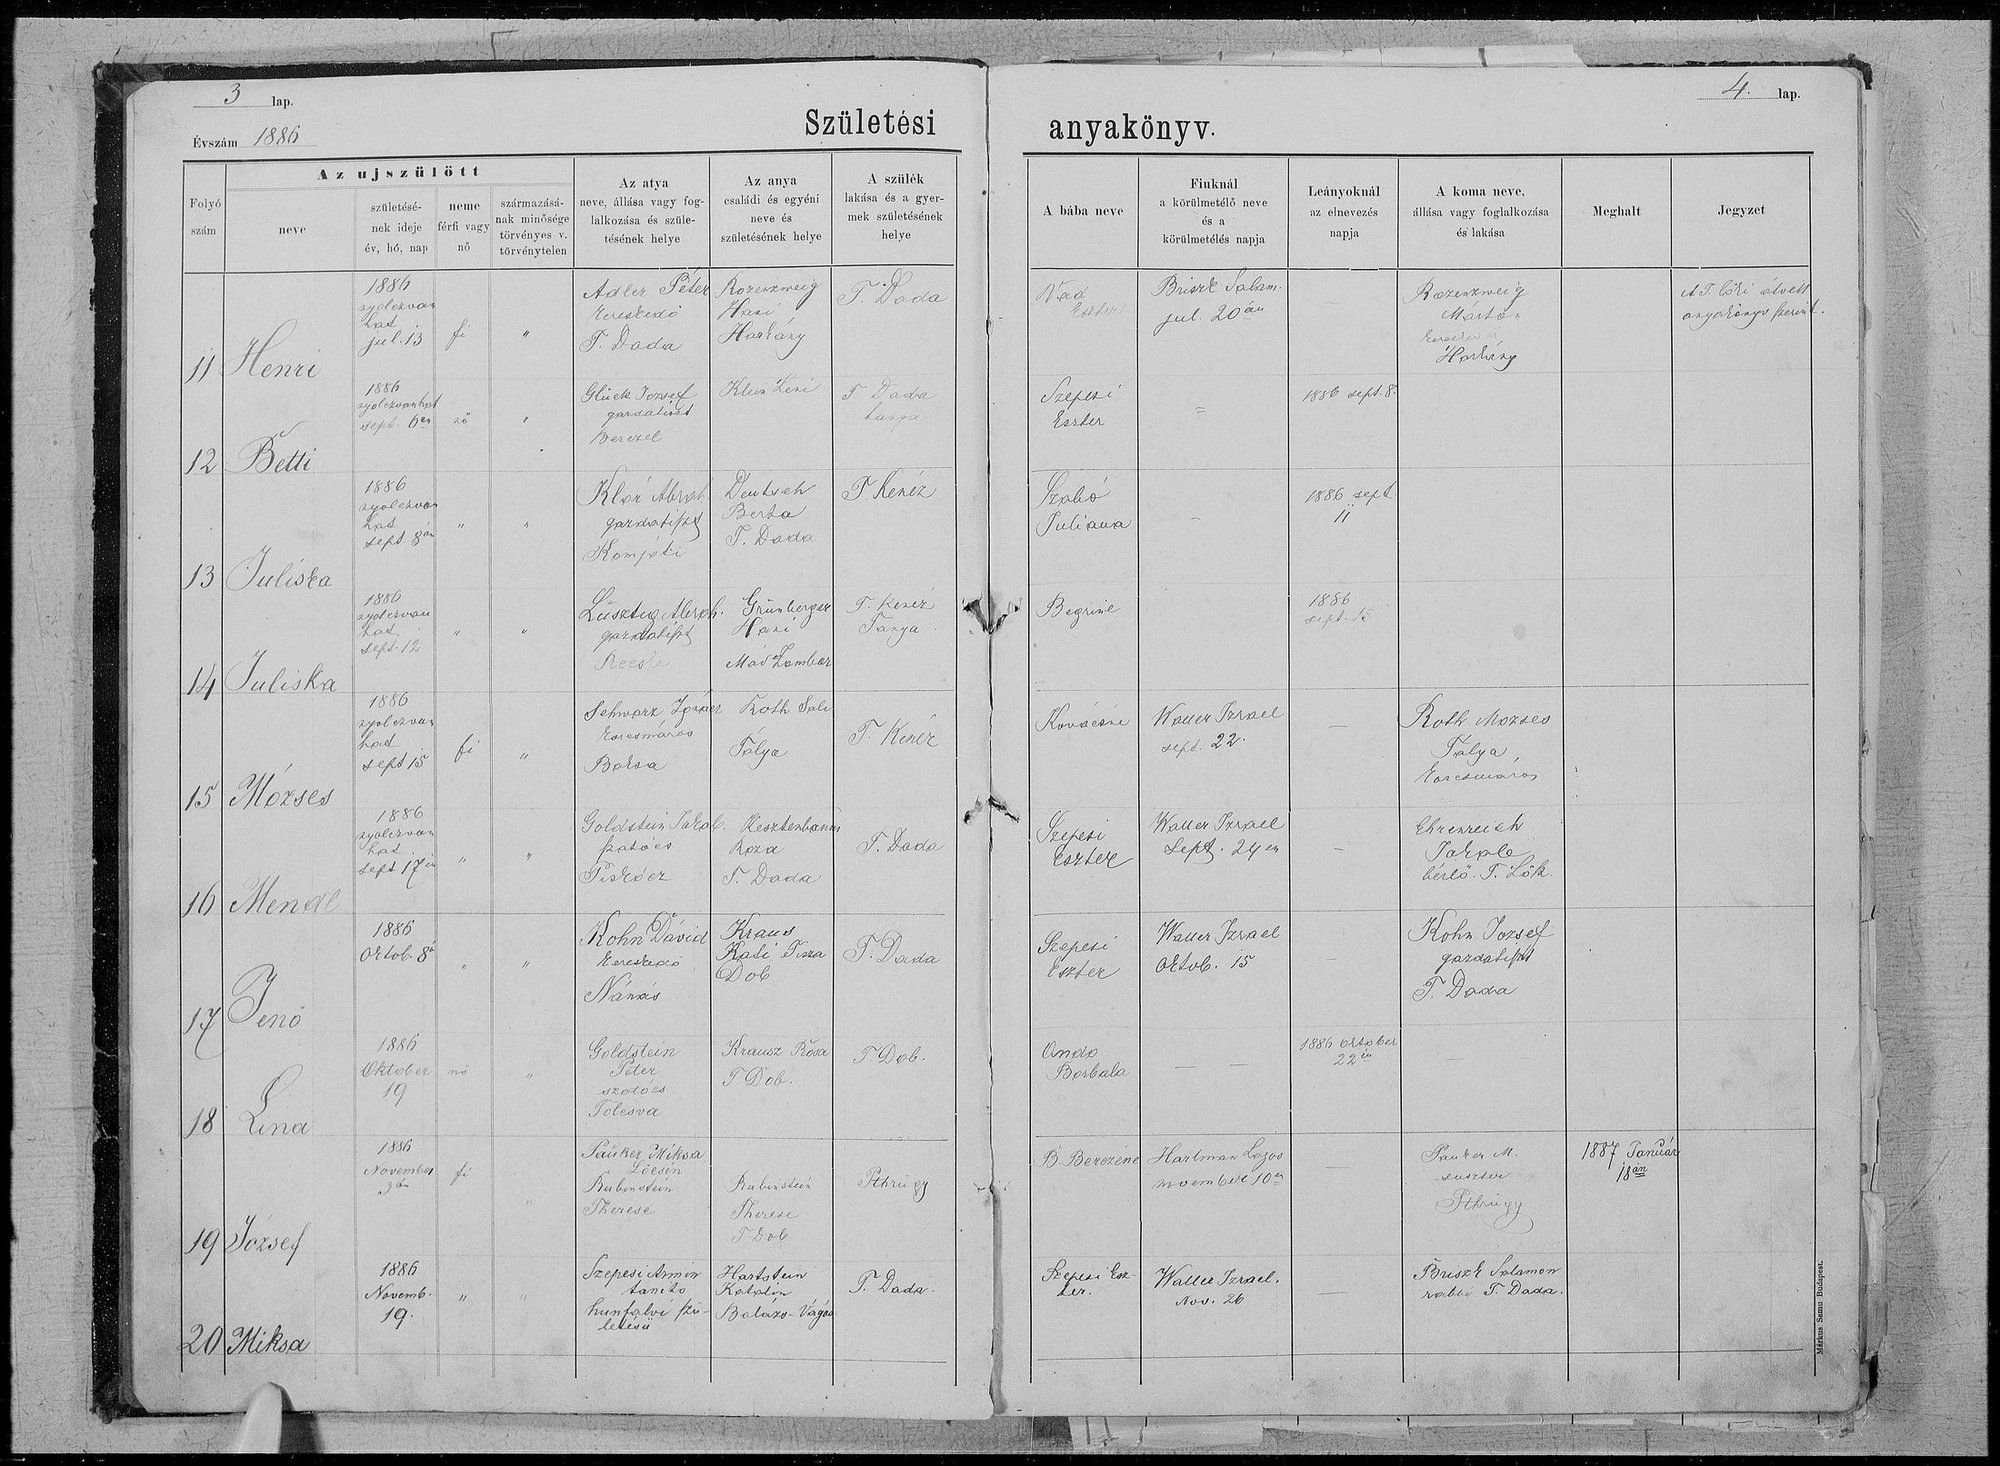 3 lap.
Évszám 1886
Születési
Folyó szám
Az ujszülött
neve
születésé-
nek ideje
év, hó, nap
neme
férfi vagy
nő
származásá-
nak minősége
törvényes v.
törvénytelen
Az atya
neve, állása vagy fog-
lalkozása és szüle-
tésének helye
Az anya
családi és egyéni
neve és
születésének helye
A szülék
lakása és a gyer-
mek születésének
helye
11 Henri
1886
nyolczvan
hat
jul. 13
fi
"
Adler Péter
kereskedő
T. Dada
Rozenzweig
Hani
Harkány
T. Dada
12 Betti
1886
nyolczvanhat
sept. 6án
nő
"
Glück József
gazdatiszt
Berczel
Klein Leni
T Dada
tanya
13 Juliska
1886
nyolczvan
hat
sept 8án
"
"
Klár Abrah.
gazdatiszt
Komjáti
Deutsch
Berta
T. Dada
T Kenéz
14 Juliska
1886
nyolczvan
hat
sept. 12
"
"
Lusztig Abrah.
gazdatiszt
Grünberger
Hani
Mád Zombor
T. Kenéz
Tanya
15 Mózses
1886
nyolczvan
hat
sept 15
fi
"
Schwarz Ignácz
korcsmáros
Baksa
Roth Sali
Tálya
T. Kenéz
16 Mendl
1886
nyolczvan
hat
sept 17én
"
"
Goldstein Jakab.
szatócs
Piskócz
Kesztenbaum
Roza
T. Dada
T. Dada
17 Jenő
1886
Oktob. 8á
"
"
Kohn Dávid
kereskedő
Nánás
Kraus
Kati Tisza
Dob
T. Dada
18 Lina
1886
Oktober
19
nő
"
Goldstein
Péter
szatócs
Tolcsva
Krausz Rósa
T Dob.
T Dob.
19 József
1886
November
3án
fi
"
Pauker Miksa
Löcsén
Rubinstein
Therese
Rubinstein
Therese
T Dob
Pthrügy
20 Miksa
1886
Novemb.
19.
"
"
Szepesi Armin
tanitó
hunfalvi szü-
letésü
Hartstein
Katalin
Balázs-Vágás
T. Dada.
4. lap.
anyakönyv.
A bába neve
Fiuknál
a körülmetélő neve
és a
körülmetélés napja
Leányoknál
az elnevezés
napja
A koma neve,
állása vagy foglalkozása
és lakása
Meghalt
Jegyzet
Vad
Eszter
Briszk Salam.
jul. 20án
—
Rozenzweig
Márton
Harkány
A T. löki átvett
anyakönyv szerint.
Szepesi
Eszter
=
1886 sept. 8.
Szabó
Juliana
-
1886 sept
11
Begriné
1886
sept. 15
Kovácsne
Waller Izrael
sept. 22.
—
Roth Mozses
Tálya
korcsmáros
Szepesi
Eszter
Waller Izrael
Sept. 24én
—
Ehrenreich
Jakab
bérlő. T. Lök
Szepesi
Eszter
Waller Izrael
Oktob. 15
—
Kohn József
gazdatiszt
T. Dada
Ando
Borbala
— —
1886 october
22én
—
B. Berczéne
Hartman Lajos
november 10én
—
Pauker M.
suszter
Pthrügy
1887 Január
18án
Szepesi Esz-
ter.
Waller Izrael.
Nov. 26
—
Briszk Salamon
rabbi T. Dada.
Márkus Samu Budapest.